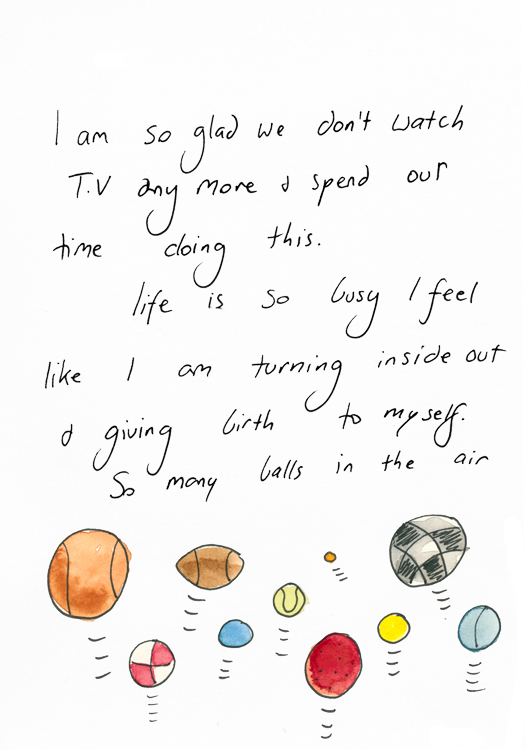 I am so glad we don't watch
T.V any more & spend our
time doing this.
life is so busy I feel
like I am turning inside out
& giving birth to myself.
So many balls in the air